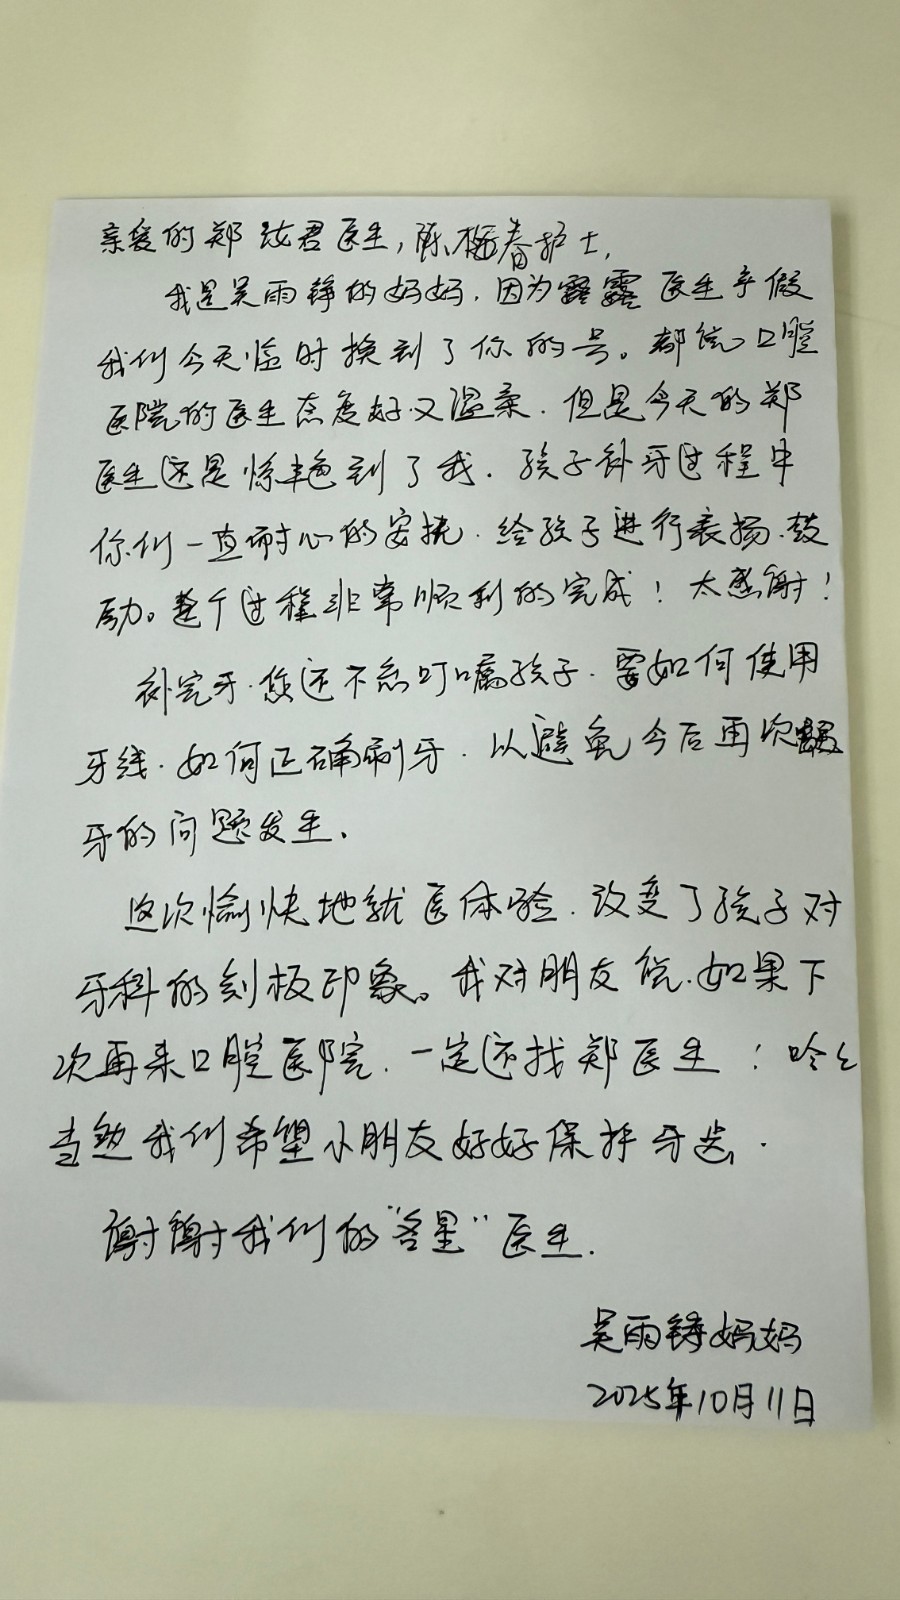 亲爱的郑 君医生，陈 春护士，
我是吴雨铮的妈妈，因为露露医生产假
我们今天临时换到了你的号。都说口腔
医院的医生态度好又温柔，但是今天的郑
医生还是惊艳到了我，孩子补牙过程中
你们一直耐心的安抚，给孩子进行表扬、鼓
励。整个过程非常顺利的完成！太感谢！
补完牙，您还不忘叮嘱孩子，要如何使用
牙线，如何正确刷牙，以避免今后再次
牙的问题发生，
这次愉快地就医体验，改变了孩子对
牙科的刻板印象。我对朋友说，如果下
次再来口腔医院，一定还找郑医生！哈哈
当然我们希望小朋友好好保护牙齿，
谢谢我们的“ 星”医生.
吴雨铮妈妈
2025年10月11日